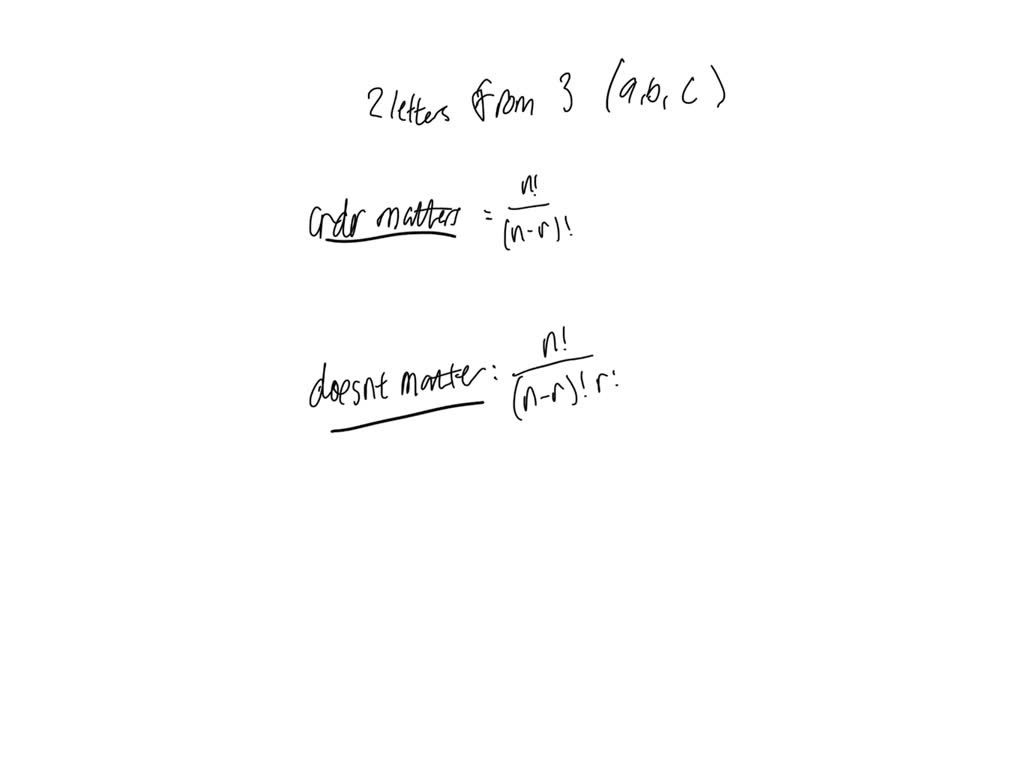 2 letters from 3 (a, b, c)
ordr matters = n! / (n-r)!
doesnt matter: n! / (n-r)! r!